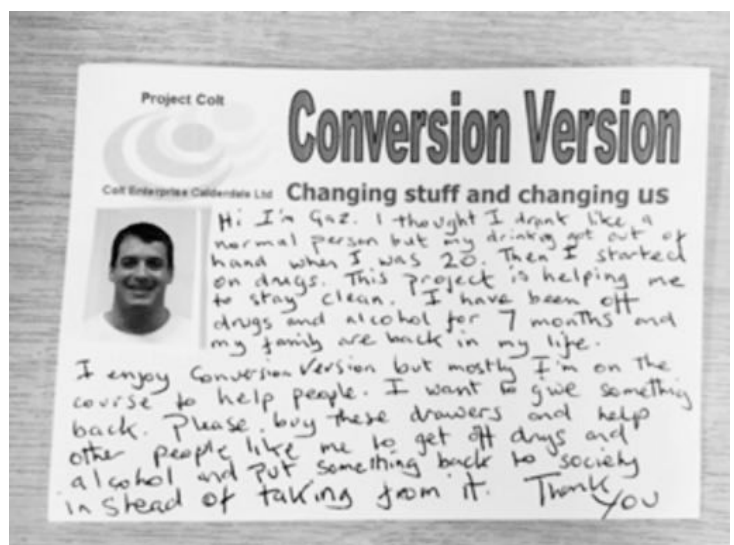 Project Colt
Conversion Version
Colt Enterprise Calderdale Ltd
Changing stuff and changing us
Hi I'm Gaz. I thought I drank like a
normal person but my drinking got out of
hand when I was 20. Then I started
on drugs. This project is helping me
to stay clean. I have been off
drugs and alcohol for 7 months and
my family are back in my life.
I enjoy Conversion Version but mostly I'm on the
course to help people. I want to give something
back. Please buy these drawers and help
other people like me to get off drugs and
alcohol and put something back to society
instead of taking from it. Thank
you